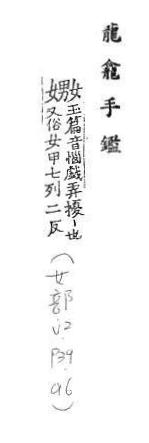 龍龕手鑑
嫐玉篇音惱戲弄擾丨也
又俗女甲七列二反
(女部.V2.P39.96)